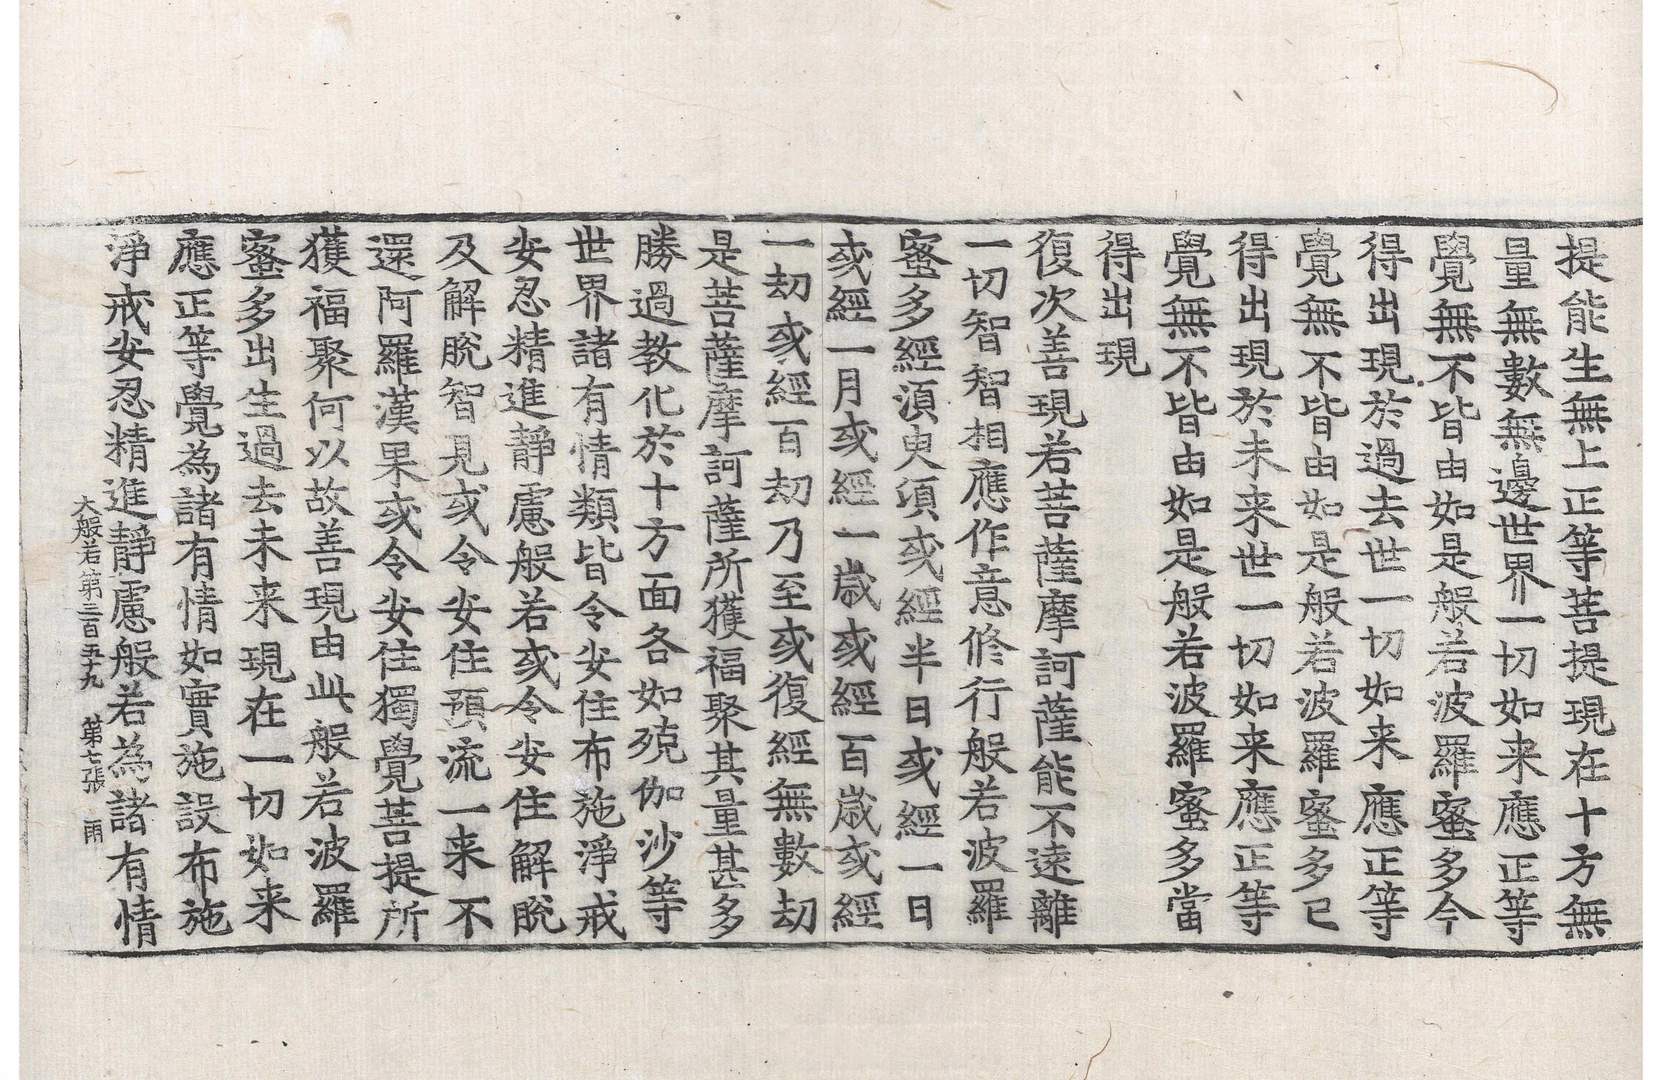 提能生無上正等菩提現在十方無
量無數無邊世界一切如来應正等
覺無不皆由如是般若波羅蜜多今
得出現於過去世一切如来應正等
覺無不皆由如是般若波羅蜜多已
得出現於未来世一切如来應正等
覺無不皆由如是般若波羅蜜多當
得出現
復次善現若菩薩摩訶薩能不遠離
一切智智相應作意修行般若波羅
蜜多經須臾須或經半日或經一日
或經一月或經一歲或經百歲或經
一劫或經百劫乃至或復經無數劫
是菩薩摩訶薩所獲福聚其量甚多
勝過教化於十方面各如殑伽沙等
世界諸有情類皆令安住布施淨戒
安忍精進靜慮般若或令安住解脫
及解脫智見或令安住預流一来不
還阿羅漢果或令安住獨覺菩提所
獲福聚何以故善現由此般若波羅
蜜多出生過去未来現在一切如来
應正等覺為諸有情如實施設布施
淨戒安忍精進靜慮般若為諸有情
大般若第三百五十九 第七張 雨